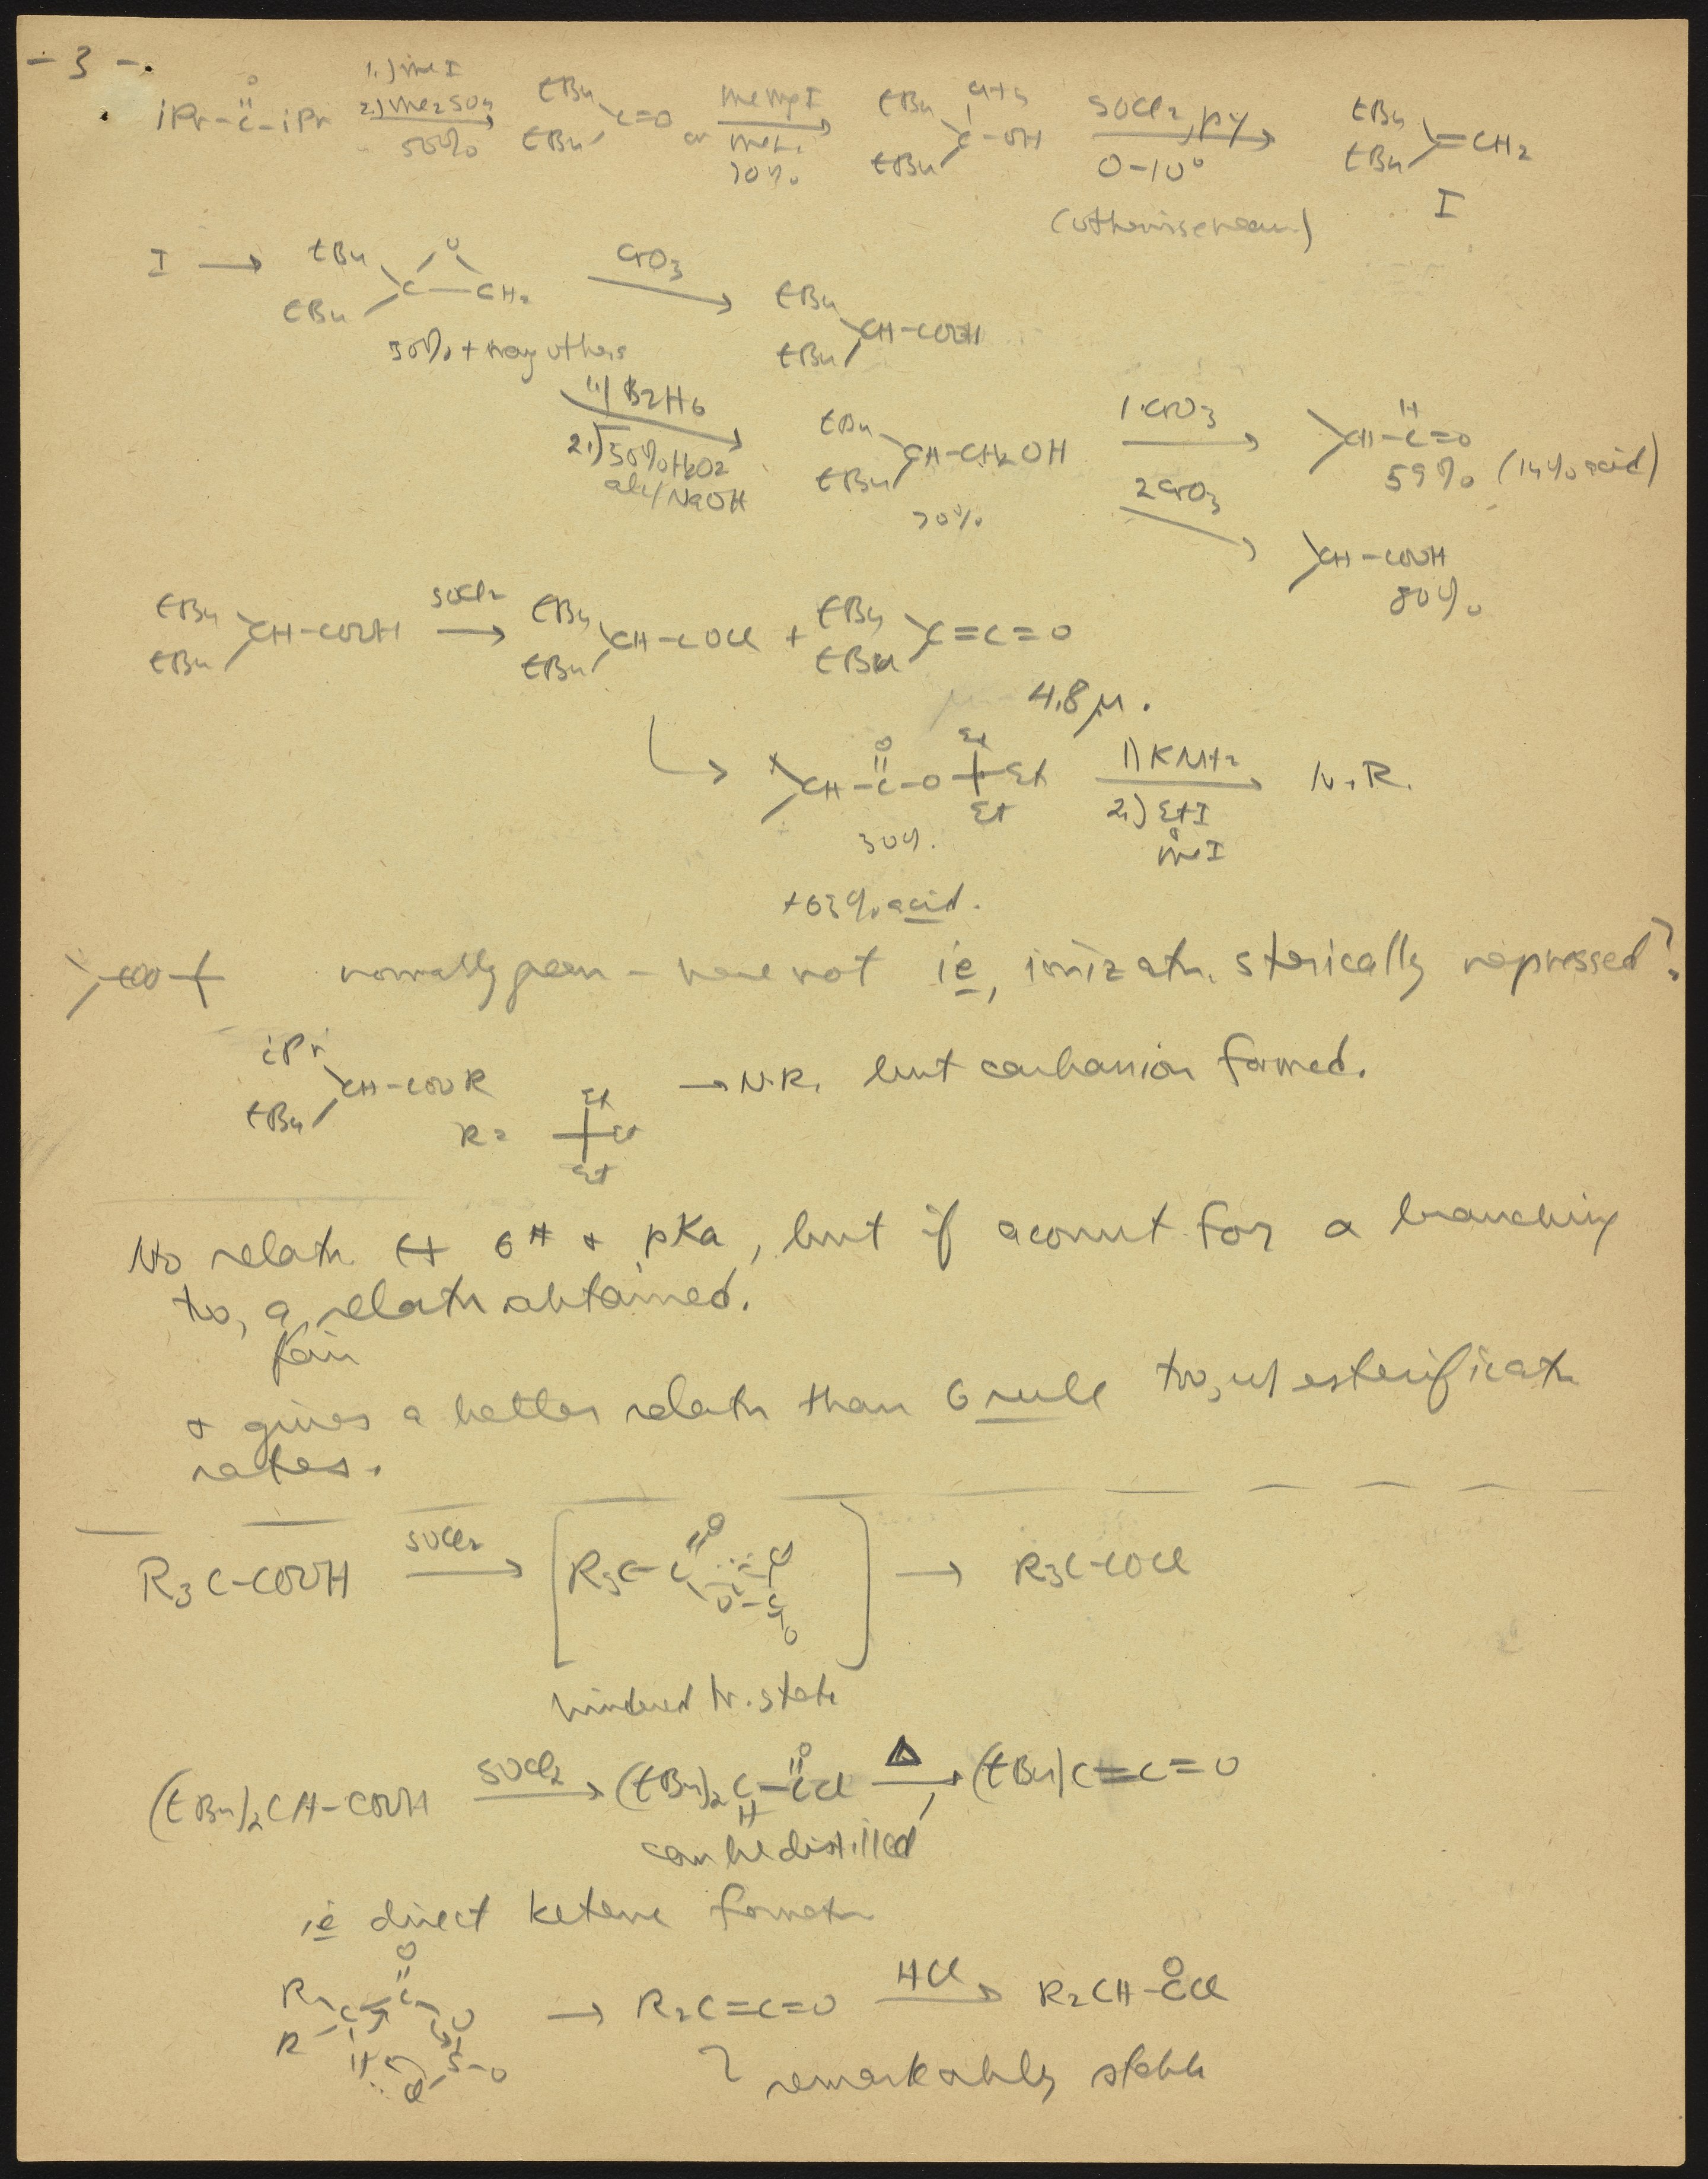 - 3 -
iPr-C(=O)-iPr 1.) MeI 2.) Me2SO4 50% → tBu tBu C=O MeMgI or MeLi 70% → tBu tBu C(CH3)-OH SOCl2, py 0-10° → tBu tBu C=CH2
(otherwise rearr.) I
I → tBu tBu C-O-CH2 CrO3 → tBu tBu CH-COOH
50% + many others
1.) B2H6 2.) 30% H2O2 alc/NaOH → tBu tBu CH-CH2OH 70% 1 CrO3 → CH-C(H)=O 59% (14% acid)
2 CrO3 → CH-COOH 80%
tBu tBu CH-COOH SOCl2 → tBu tBu CH-COCl + tBu tBu C=C=O
4.8 μ.
→ CH-C(=O)-O-C Et Et Et 1) KNH2 2.) EtI or MeI → N.R.
30%.
+63% acid.
-COO- normally - here not ie, ionizatn. sterically repressed?
iPr tBu CH-COOR → N.R. but carbanion formed.
R = Et Et Et
No relatn ↔ σ* + pKa, but if account for α branching
too, a fair relatn obtained.
+ gives a better relatn than 6 rule too, w/ esterificatn
rates.
R3C-COOH SOCl2 → [R3C-C(=O) O-S=O Cl] → R3C-COCl
hindered tr. state
(tBu)2CH-COOH SOCl2 → (tBu)2C(H)-C(=O)Cl Δ → (tBu)C=C=O
can be distilled
ie direct ketene formatn
R R C C=O O S-O H Cl → R2C=C=O HCl → R2CH-C(=O)Cl
remarkably stable